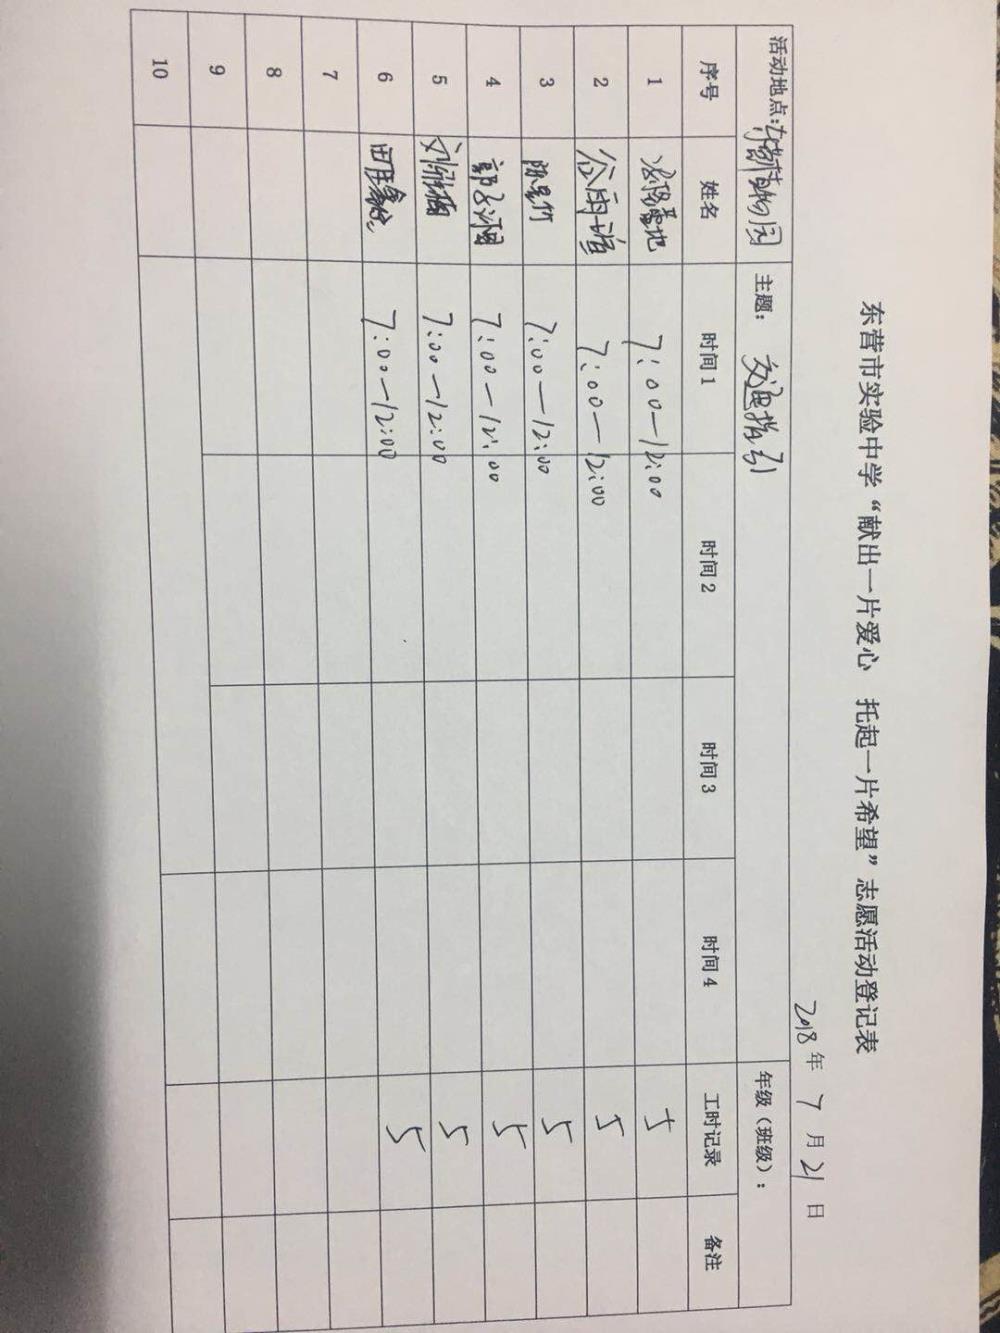 东营市实验中学“献出一片爱心 托起一片希望”志愿活动登记表
2018年 7 月 21 日
活动地点: 植物园 主题: 交通指引 年级（班级）:
序号 姓名 时间1 时间2 时间3 时间4 工时记录 备注
1 7:00—12:00 5
2 谷雨 7:00—12:00 5
3 7:00—12:00 5
4 郭子 7:00—12:00 5
5 刘 7:00—12:00 5
6 田 7:00—12:00 5
7
8
9
10